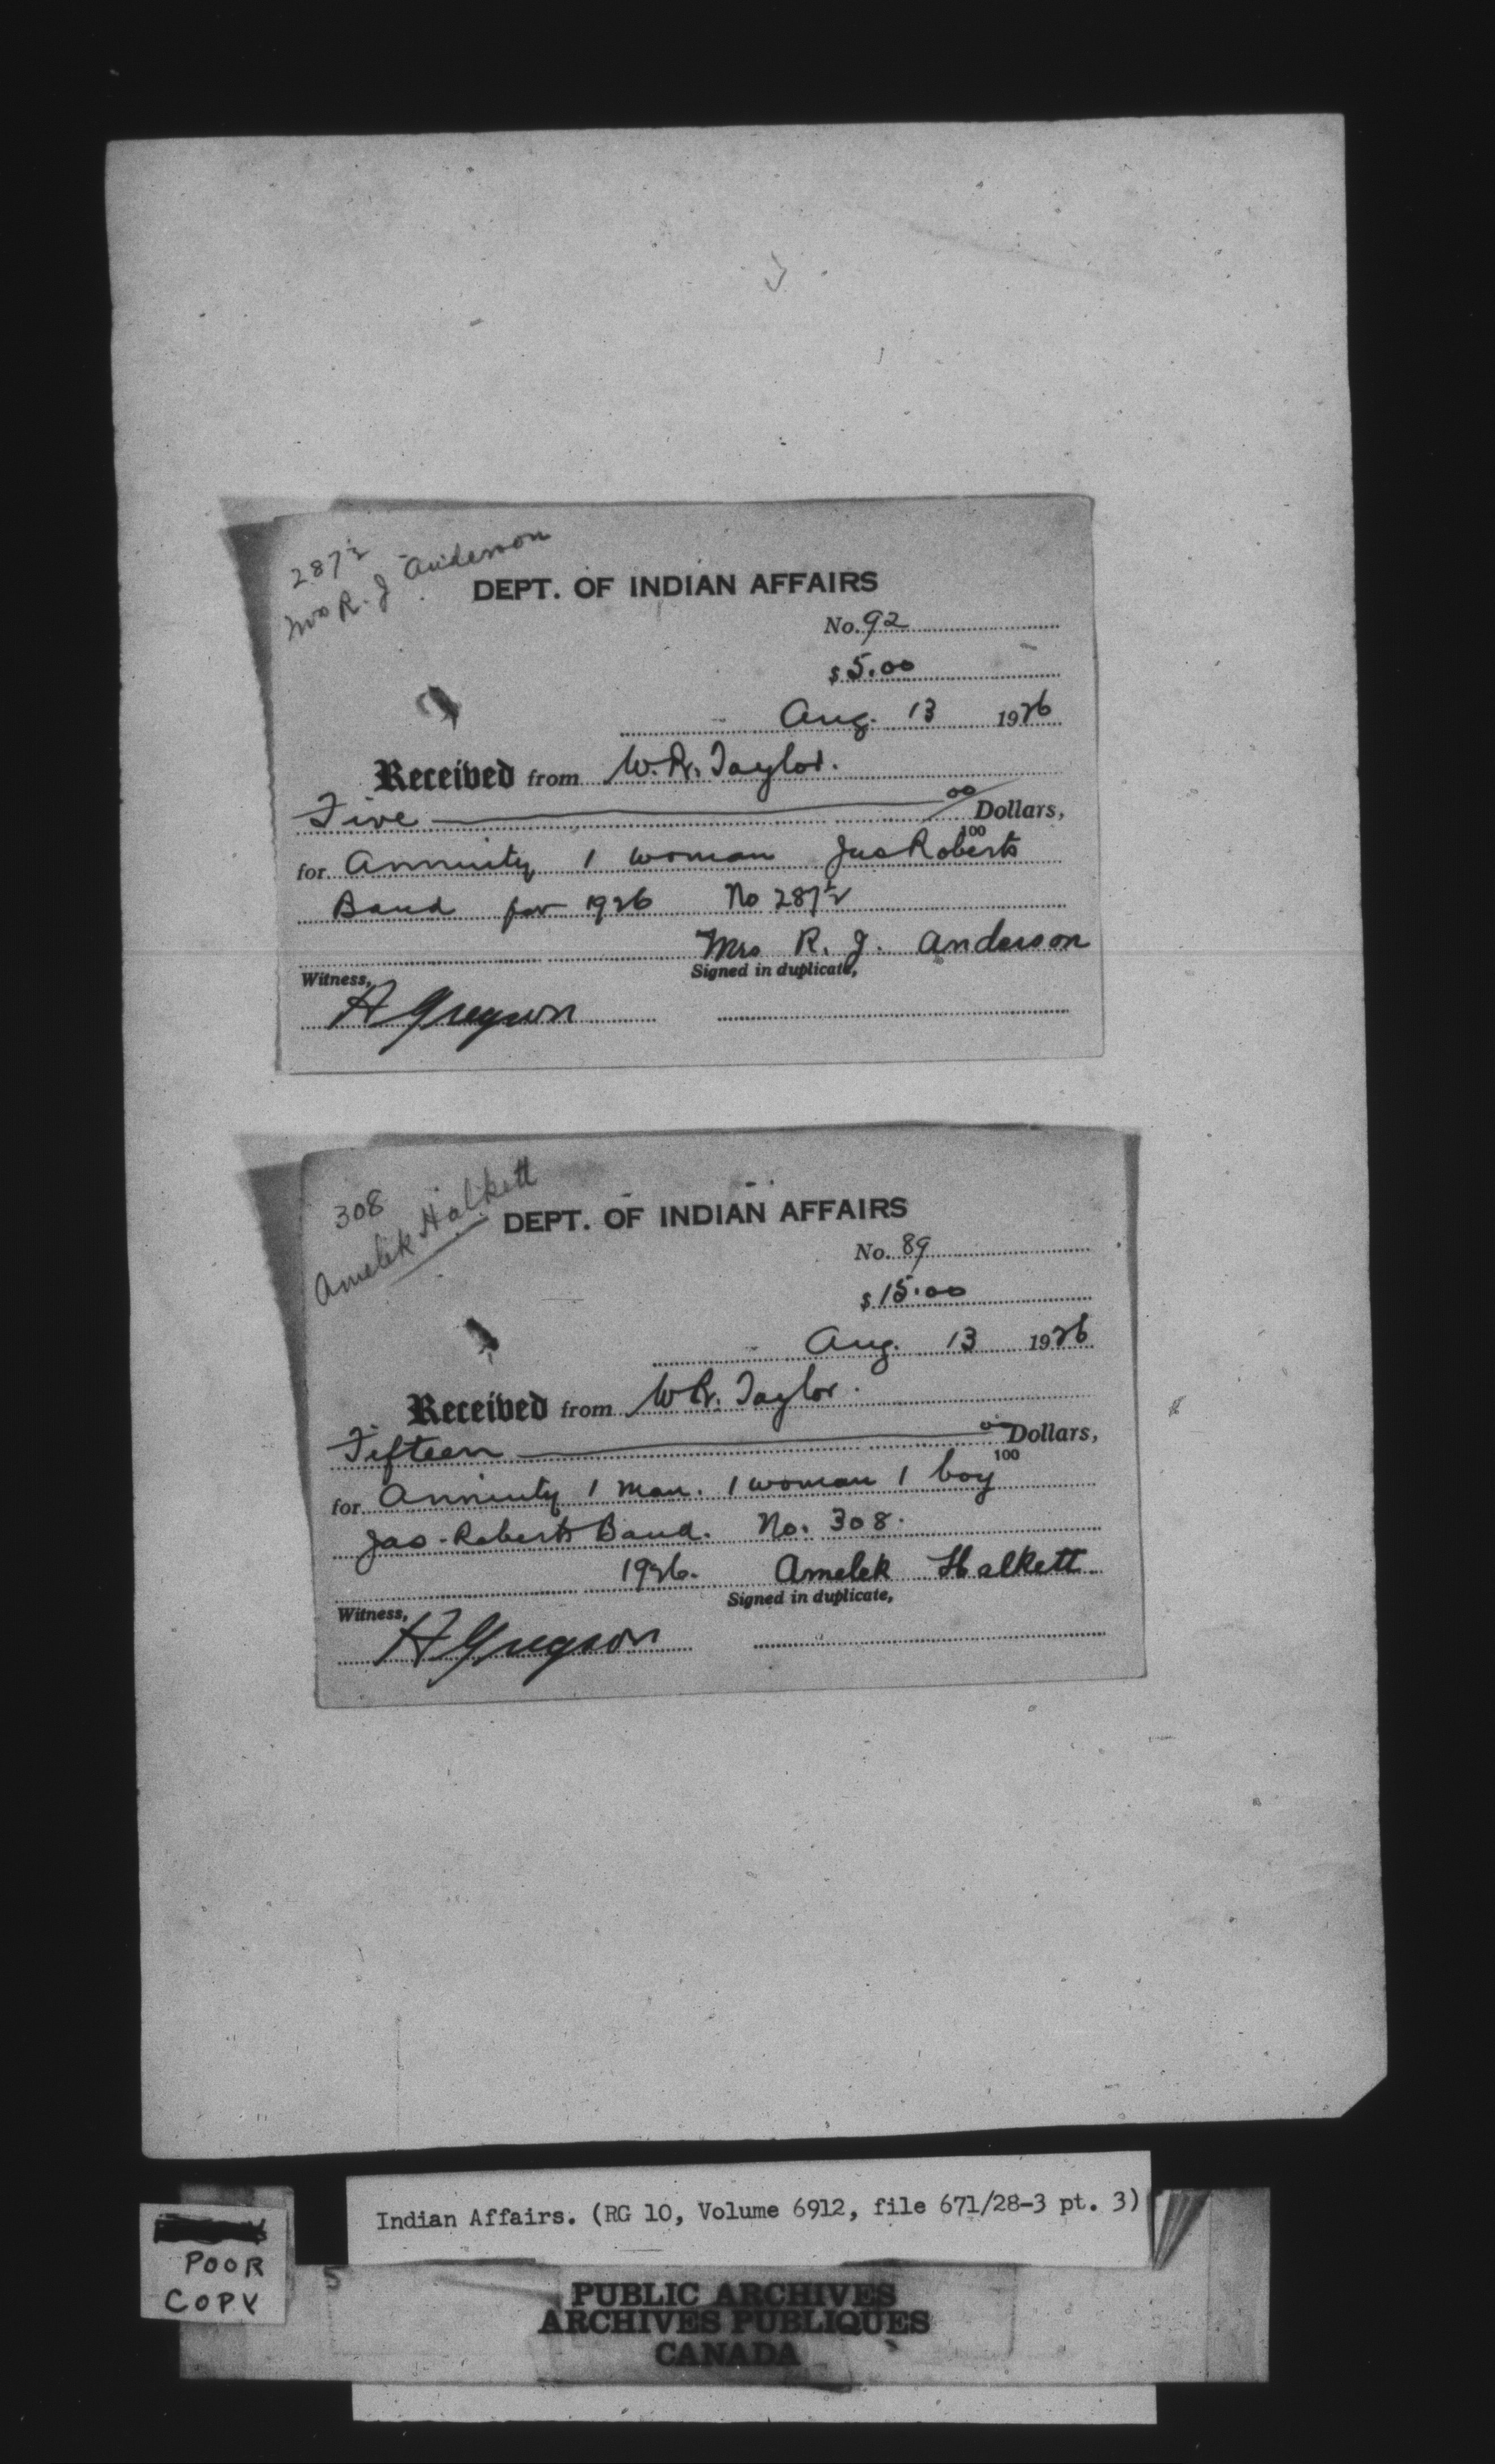 287½
Mrs R. J Anderson
DEPT. OF INDIAN AFFAIRS
No. 92
$ 5.00
Aug. 13 1926
Received from W. R. Taylor.
Five 00/100 Dollars,
for Annuity 1 woman Jas Roberts
Band for 1926 No 287½
Mrs R. J. Anderson
Witness, Signed in duplicate,
H Gregson
308
Amelek Halkett
DEPT. OF INDIAN AFFAIRS
No. 89
$ 15.00
Aug. 13 1926
Received from W R. Taylor.
Fifteen 00/100 Dollars,
for Annuity 1 man. 1 woman 1 boy
Jas. Roberts Band. No. 308.
1926. Amelek Halkett
Witness, Signed in duplicate,
H Gregson
Indian Affairs. (RG 10, Volume 6912, file 671/28-3 pt. 3)
POOR
COPY
5
PUBLIC ARCHIVES
ARCHIVES PUBLIQUES
CANADA